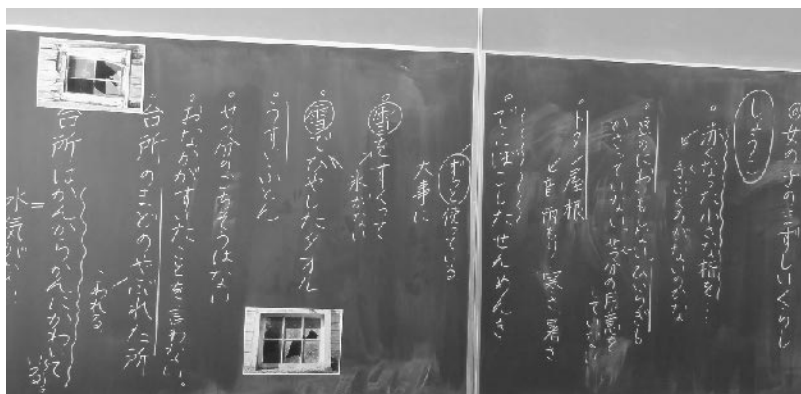 女の子のまずしいくらし
しょうこ
。赤くなった小さな指を…
手ぶくろがないのかな
かざっていない 節分の用意を
ていない
トタン屋根
ビ音 雨もり 寒さ 暑さ
。でこぼこしたせんめんき
ずっと使っている
大事に
。雪をすくって
水がない
。雪でひやしたタオル
。うすいふとん
。せつ分のごちそうはない
。おなかがすいたことを言わない。
。台所のまどのやぶれた所
われる
台所はかんからかんにかわいて
いる。
水気がない…